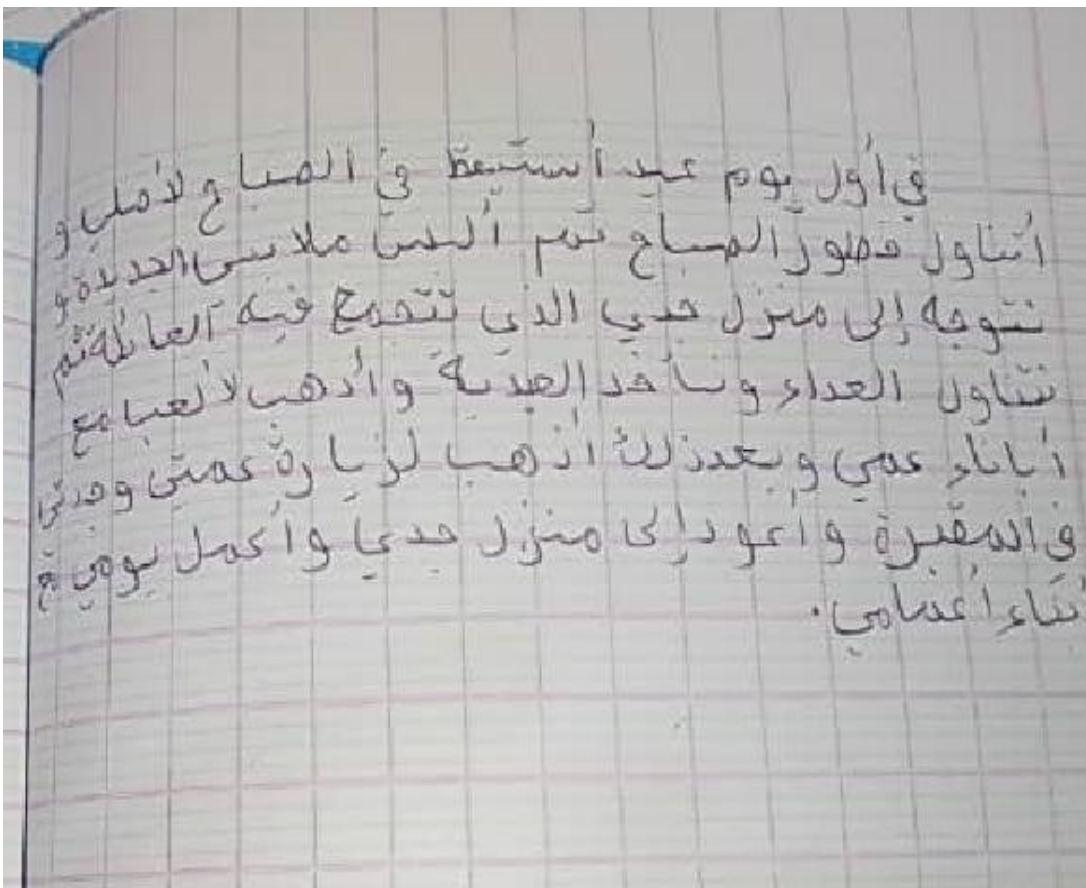 في أول يوم عيد أستيقظ في الصباح لأصلي و
أتناول فطور الصباح ثم ألبس ملابسي الجديدة و
نتوجه إلى منزل جدي الذي تتجمع فيه العائلة ثم
نتناول الغداء ونأخد العيدية وأذهب لألعب مع
أبناء عمي وبعد ذلك أذهب لزيارة عمتي وجدتي
في المقبرة وأعود إلى منزل جدي وأكمل يومي مع
أبناء أعمامي.